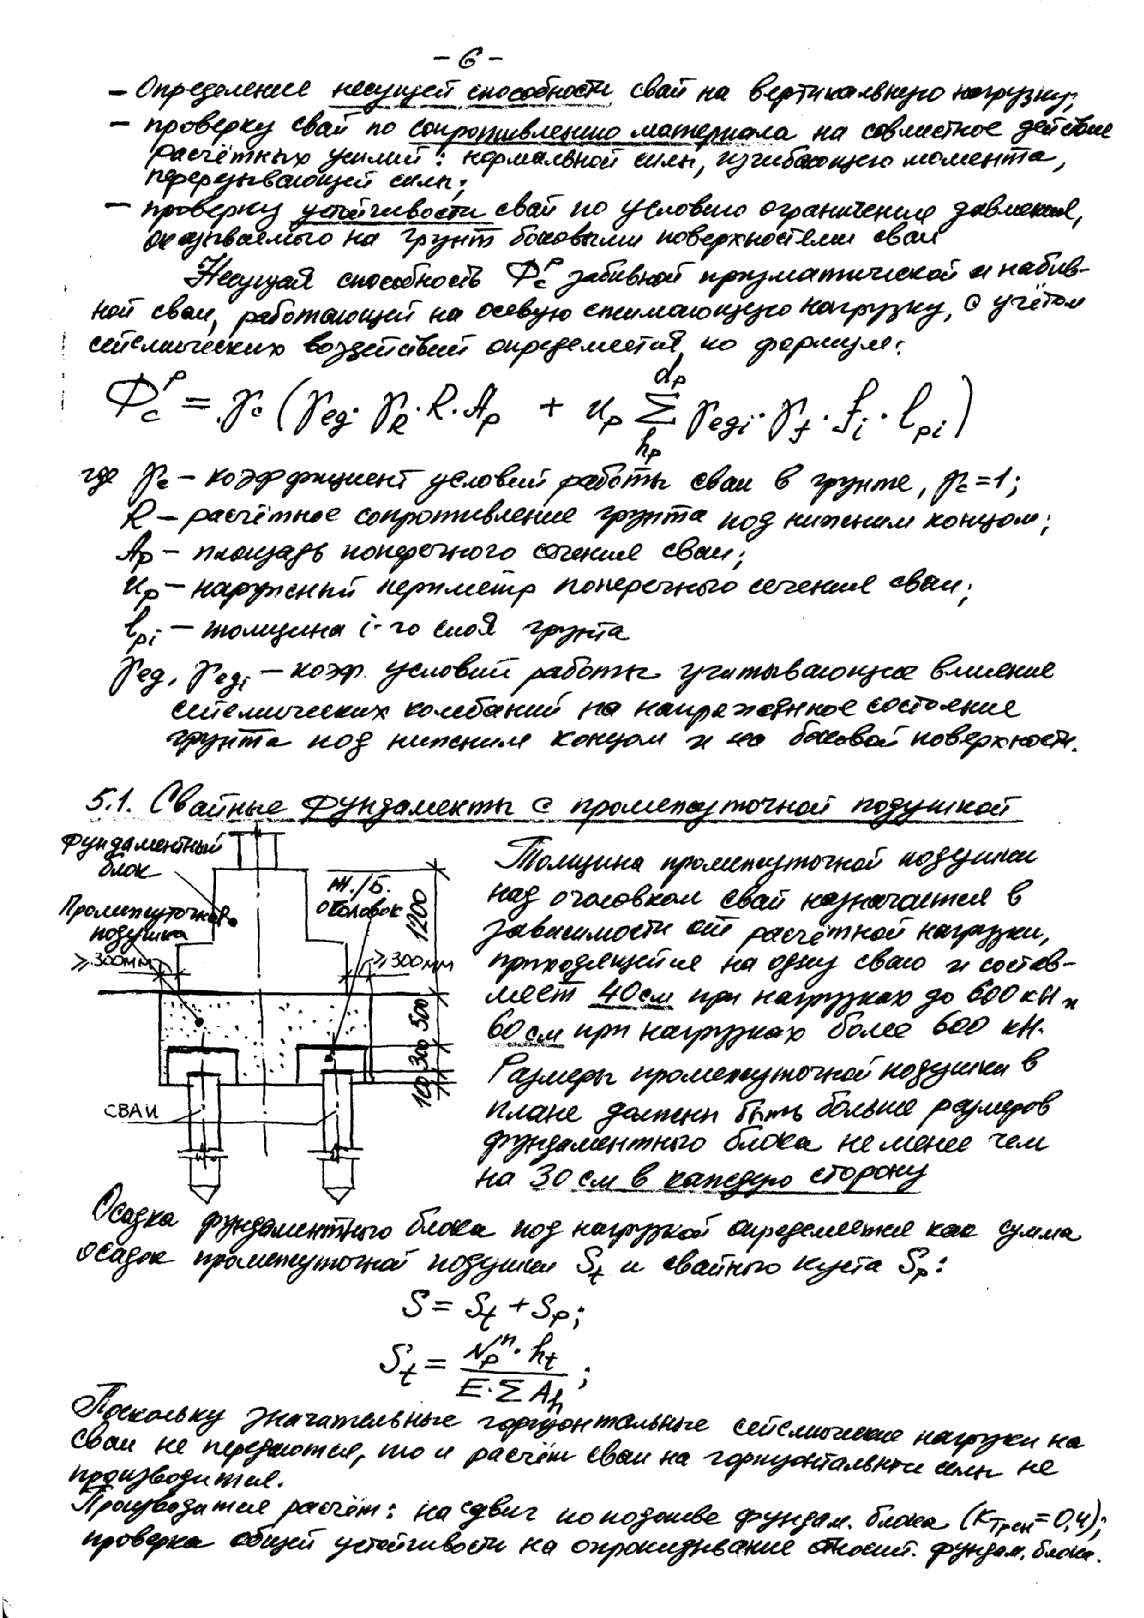 - 6 -
– Определение несущей способности свай на вертикальную нагрузку;
– проверку свай по сопротивлению материала на совместное действие
расчётных усилий: нормальной силы, изгибающего момента,
перерезывающей силы;
– проверку устойчивости свай по условию ограничения давления,
оказываемого на грунт боковыми поверхностями сваи
Несущая способность Фcᵖ забивной призматической и набив-
ной сваи, работающей на осевую сжимающую нагрузку, с учётом
сейсмических воздействий определяется по формуле:
Фcᵖ = γc (γeд· γR · R · Ap + up Σ γeдi · γf · fi · lpi)
dp
hp
где γc – коэффициент условий работы сваи в грунте, γc = 1;
R – расчётное сопротивление грунта под нижним концом;
Ap – площадь поперечного сечения сваи;
up – наружный периметр поперечного сечения сваи;
lpi – толщина i-го слоя грунта
γeд, γeдi – коэф. условий работы учитывающие влияние
сейсмических колебаний на напряжённое состояние
грунта под нижним концом и на боковой поверхности.
5.1. Свайные фундаменты с промежуточной подушкой
Фундаментный
блок
Промежуточная
подушка
Ж./Б.
оголовок
⩾300мм
⩾300мм
1200
500
300
100
СВАИ
Толщина промежуточной подушки
над оголовком свай назначается в
зависимости от расчётной нагрузки,
приходящейся на одну сваю и состав-
ляет 40см при нагрузках до 600 кН и
60см при нагрузках более 600 кН.
Размеры промежуточной подушки в
плане должны быть больше размеров
фундаментного блока не менее чем
на 30 см в каждую сторону
Осадка фундаментного блока под нагрузкой определяется как сумма
осадок промежуточной подушки St и свайного куста Sp:
S = St + Sp;
St = Npⁿ · ht / E · Σ Ah ;
Поскольку значительные горизонтальные сейсмические нагрузки на
сваи не передаются, то и расчёт сваи на горизонтальные силы не
производится.
Производится расчёт: на сдвиг по подошве фундам. блока (Kтрен = 0,4);
проверка общей устойчивости на опрокидывание относит. фундам. блока.